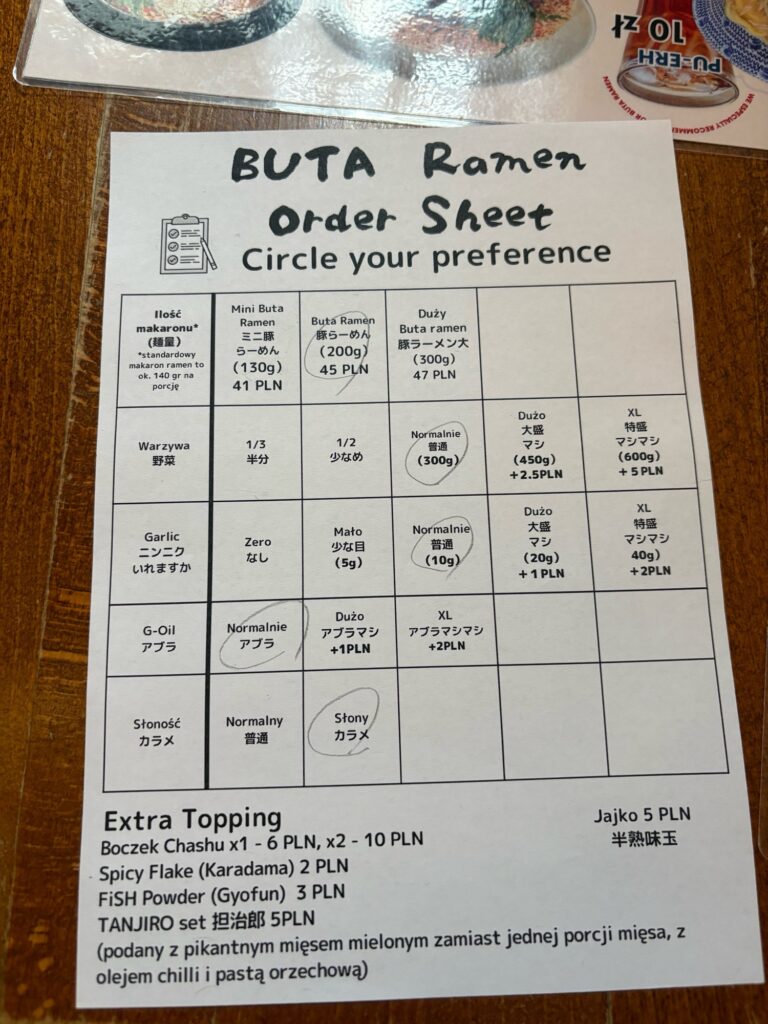 10 zł
PU-ERH
WE ESPECIALLY RECOMMEND
BUTA RAMEN
BUTA Ramen
Order Sheet
Circle your preference
Ilość
makaronu*
(麺量)
*standardowy
makaron ramen to
ok. 140 gr na
porcję
Mini Buta
Ramen
ミニ豚
らーめん
(130g)
41 PLN
Buta Ramen
豚らーめん
(200g)
45 PLN
Duży
Buta ramen
豚ラーメン大
(300g)
47 PLN
Warzywa
野菜
1/3
半分
1/2
少なめ
Normalnie
普通
(300g)
Dużo
大盛
マシ
(450g)
+2.5PLN
XL
特盛
マシマシ
(600g)
+ 5 PLN
Garlic
ニンニク
いれますか
Zero
なし
Mało
少な目
(5g)
Normalnie
普通
(10g)
Dużo
大盛
マシ
(20g)
+ 1 PLN
XL
特盛
マシマシ
40g)
+2PLN
G-Oil
アブラ
Normalnie
アブラ
Dużo
アブラマシ
+1PLN
XL
アブラマシマシ
+2PLN
Słoność
カラメ
Normalny
普通
Słony
カラメ
Extra Topping
Boczek Chashu x1 - 6 PLN, x2 - 10 PLN
Spicy Flake (Karadama) 2 PLN
FiSH Powder (Gyofun) 3 PLN
TANJIRO set 担治郎 5PLN
(podany z pikantnym mięsem mielonym zamiast jednej porcji mięsa, z
olejem chilli i pastą orzechową)
Jajko 5 PLN
半熟味玉